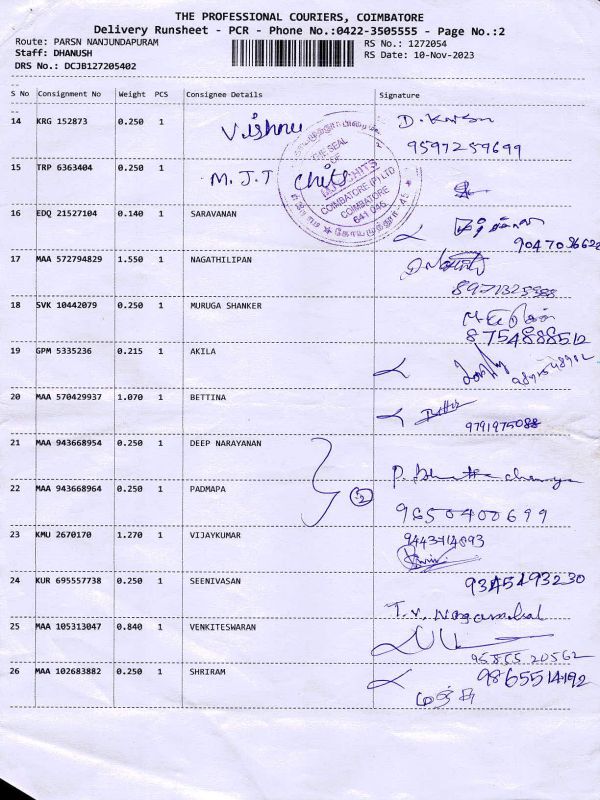 THE PROFESSIONAL COURIERS, COIMBATORE
Delivery Runsheet - PCR - Phone No.:0422-3505555 - Page No.:2
Route: PARSN NANJUNDAPURAM RS No.: 1272054
Staff: DHANUSH RS Date: 10-Nov-2023
DRS No.: DCJB127205402
S No Consignment No Weight PCS Consignee Details Signature
14 KRG 152873 0.250 1 Vishnu
9597259699
15 TRP 6363404 0.250 1 M.J.T chits
THE SEAL
OF
CHITS
COIMBATORE (P) LTD
COIMBATORE
641 045
16 EDQ 21527104 0.140 1 SARAVANAN
17 MAA 572794829 1.550 1 NAGATHILIPAN
18 SVK 10442079 0.250 1 MURUGA SHANKER
8754888512
19 GPM 5335236 0.215 1 AKILA
20 MAA 570429937 1.070 1 BETTINA
9791975088
21 MAA 943668954 0.250 1 DEEP NARAYANAN
22 MAA 943668964 0.250 1 PADMAPA
9650400699
23 KMU 2670170 1.270 1 VIJAYKUMAR
24 KUR 695557738 0.250 1 SEENIVASAN 9345493230
T.V. Nagambal
25 MAA 105313047 0.840 1 VENKITESWARAN
26 MAA 102683882 0.250 1 SHRIRAM 9865514192